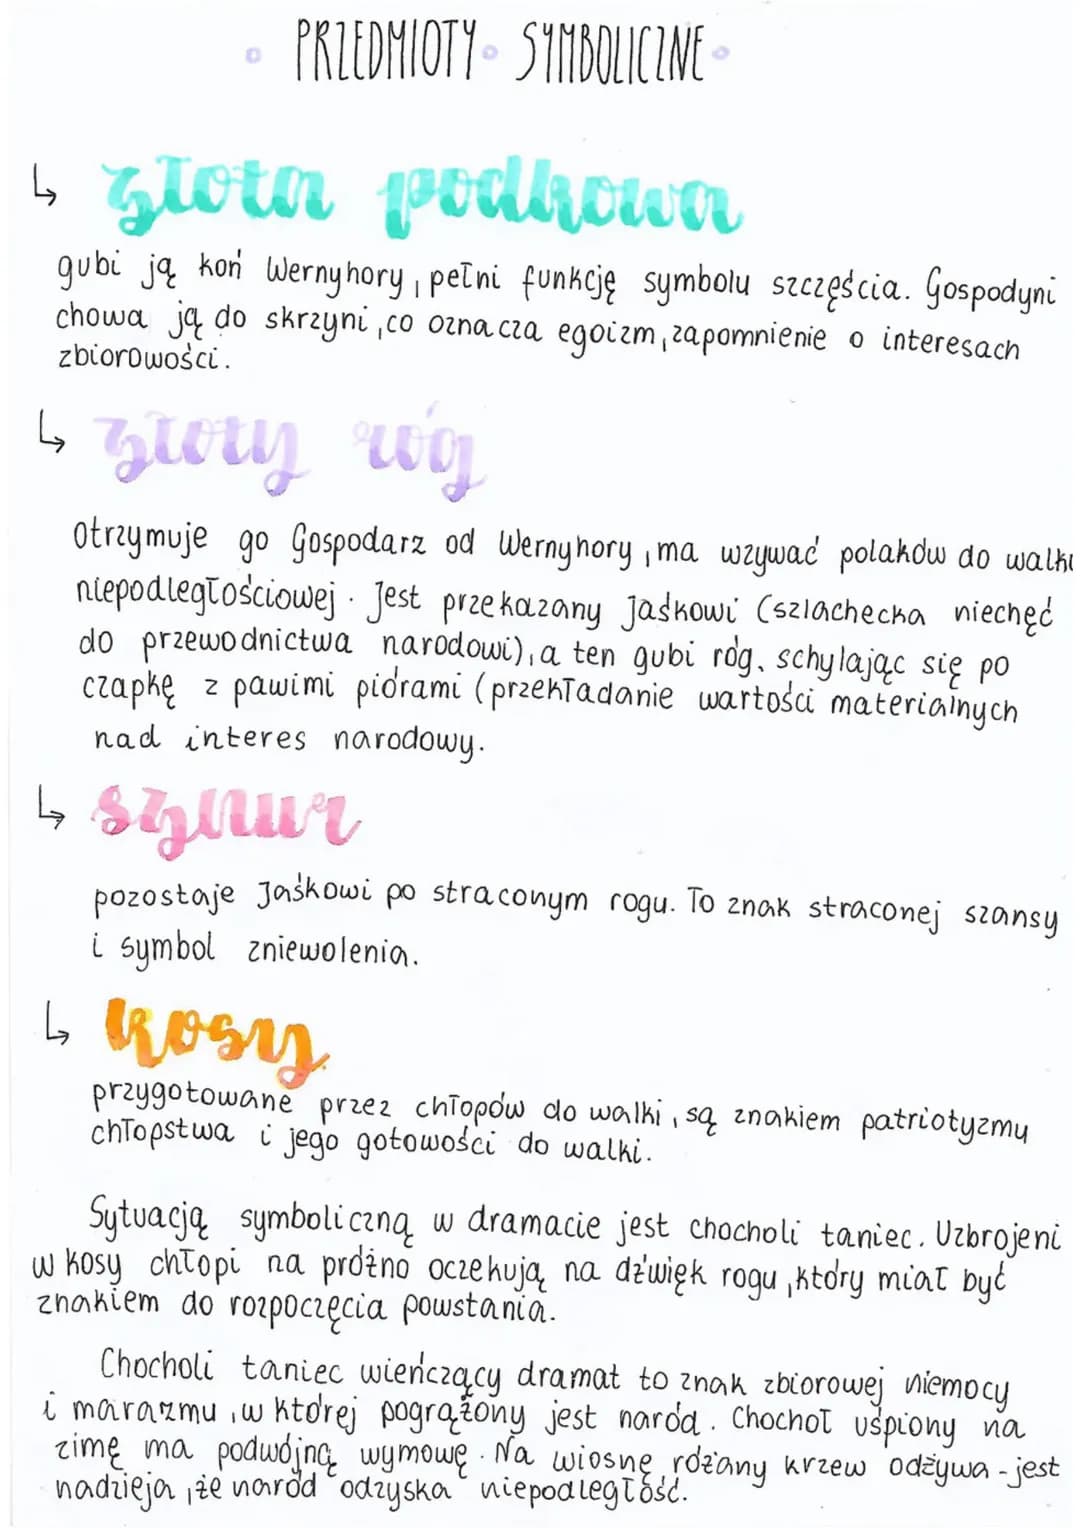 PRZEDMIOTY SYMBOLICZNE
↳ złota podkowa
gubi ją koń Wernyhory, pełni funkcję symbolu szczęścia. Gospodyni
chowa ją do skrzyni, co oznacza egoizm, zapomnienie o interesach
zbiorowości.
↳ złoty róg
Otrzymuje go Gospodarz od Wernyhory, ma wzywać polaków do walki
niepodległościowej. Jest przekazany Jaśkowi (szlachecka niechęć
do przewodnictwa narodowi), a ten gubi róg, schylając się po
czapkę z pawimi piórami (przekładanie wartości materialnych
nad interes narodowy.
↳ sznur
pozostaje Jaśkowi po straconym rogu. To znak straconej szansy
i symbol zniewolenia.
↳ kosy
przygotowane przez chłopów do walki, są znakiem patriotyzmu
chłopstwa i jego gotowości do walki.
Sytuacją symboliczną w dramacie jest chocholi taniec. Uzbrojeni
w kosy chłopi na próżno oczekują na dźwięk rogu, który miał być
znakiem do rozpoczęcia powstania.
Chocholi taniec wieńczący dramat to znak zbiorowej niemocy
i marazmu, w której pogrążony jest naród. Chochoł uśpiony na
zimę ma podwójną wymowę. Na wiosnę różany krzew odżywa - jest
nadzieja, że naród odzyska niepodległość.